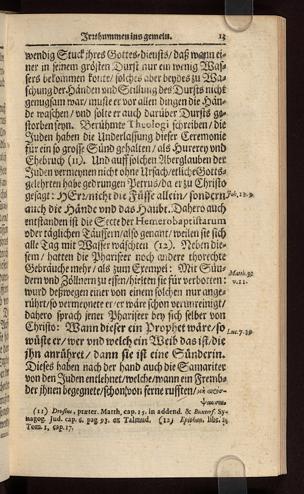 Irrthummen ins gemein. 13
wendig Stuck ihres Gottes-diensts/ daß wann ei-
ner in seinem grösten Durst nur ein wenig Was-
sers bekommen konte/ solches aber beydes zu Wa-
schung der Händen und Stillung des Dursts nicht
genugsam war/ muste er vor allen dingen die Hän-
de waschen/ und solte er auch darüber Dursts ge-
storben seyn. Berühmte Theologi schreiben/ die
Juden haben die Underlassung dieser Ceremonie
für ein so grosse Sünd gehalten/ als Hurerey und
Ehebruch (11). Und auff solchen Aberglauben der
Juden vermeynen nicht ohne Ursach/ etliche Gotts-
gelehrten habe gedrungen Petrus/ da er zu Christo
gesagt: HErr/ nicht die Füsse allein/ sondern
auch die Händ und das Haubt. Daher auch
Joh. 13.9.
entstanden ist die Secte der Hemerobaptistarum
oder täglichen Täuffern/ also genant/ weilen sie sich
alle Tag mit Wasser wäschten (12). Neben die-
sem/ hatten die Phariseer noch andere thorechte
Gebräuche mehr/ als zum Exempel: Mit Sün-
dern und Zöllnern zu essen/ hielten sie für verbotten:
Matth. 9.
v. 11.
wurd deßwegen einer von einem solchen nur ange-
rührt/ so vermeynete er/ er wäre schon verunreinigt/
dahero sprach jener Phariseer bey sich selber von
Christo: Wann dieser ein Prophet wäre/ so
wüste er/ wer und welch ein Weib das ist/ die
Luc. 7.39.
ihn anrühret/ dann sie ist eine Sünderin.
Dieses haben nach der hand auch die Samariter
von den Juden entlehnet/ welche/ wann ein Fremb-
der ihnen begegnete/ schon von ferne rufften/
(11) Drusius, præter. Matth. cap. 15. in addend. & Buxtorf. Sy-
nagog. Jud. cap. 6. pag 93. ex Talmud. (12) Epiphan. lib. 1.
Tom. 1. cap. 17.